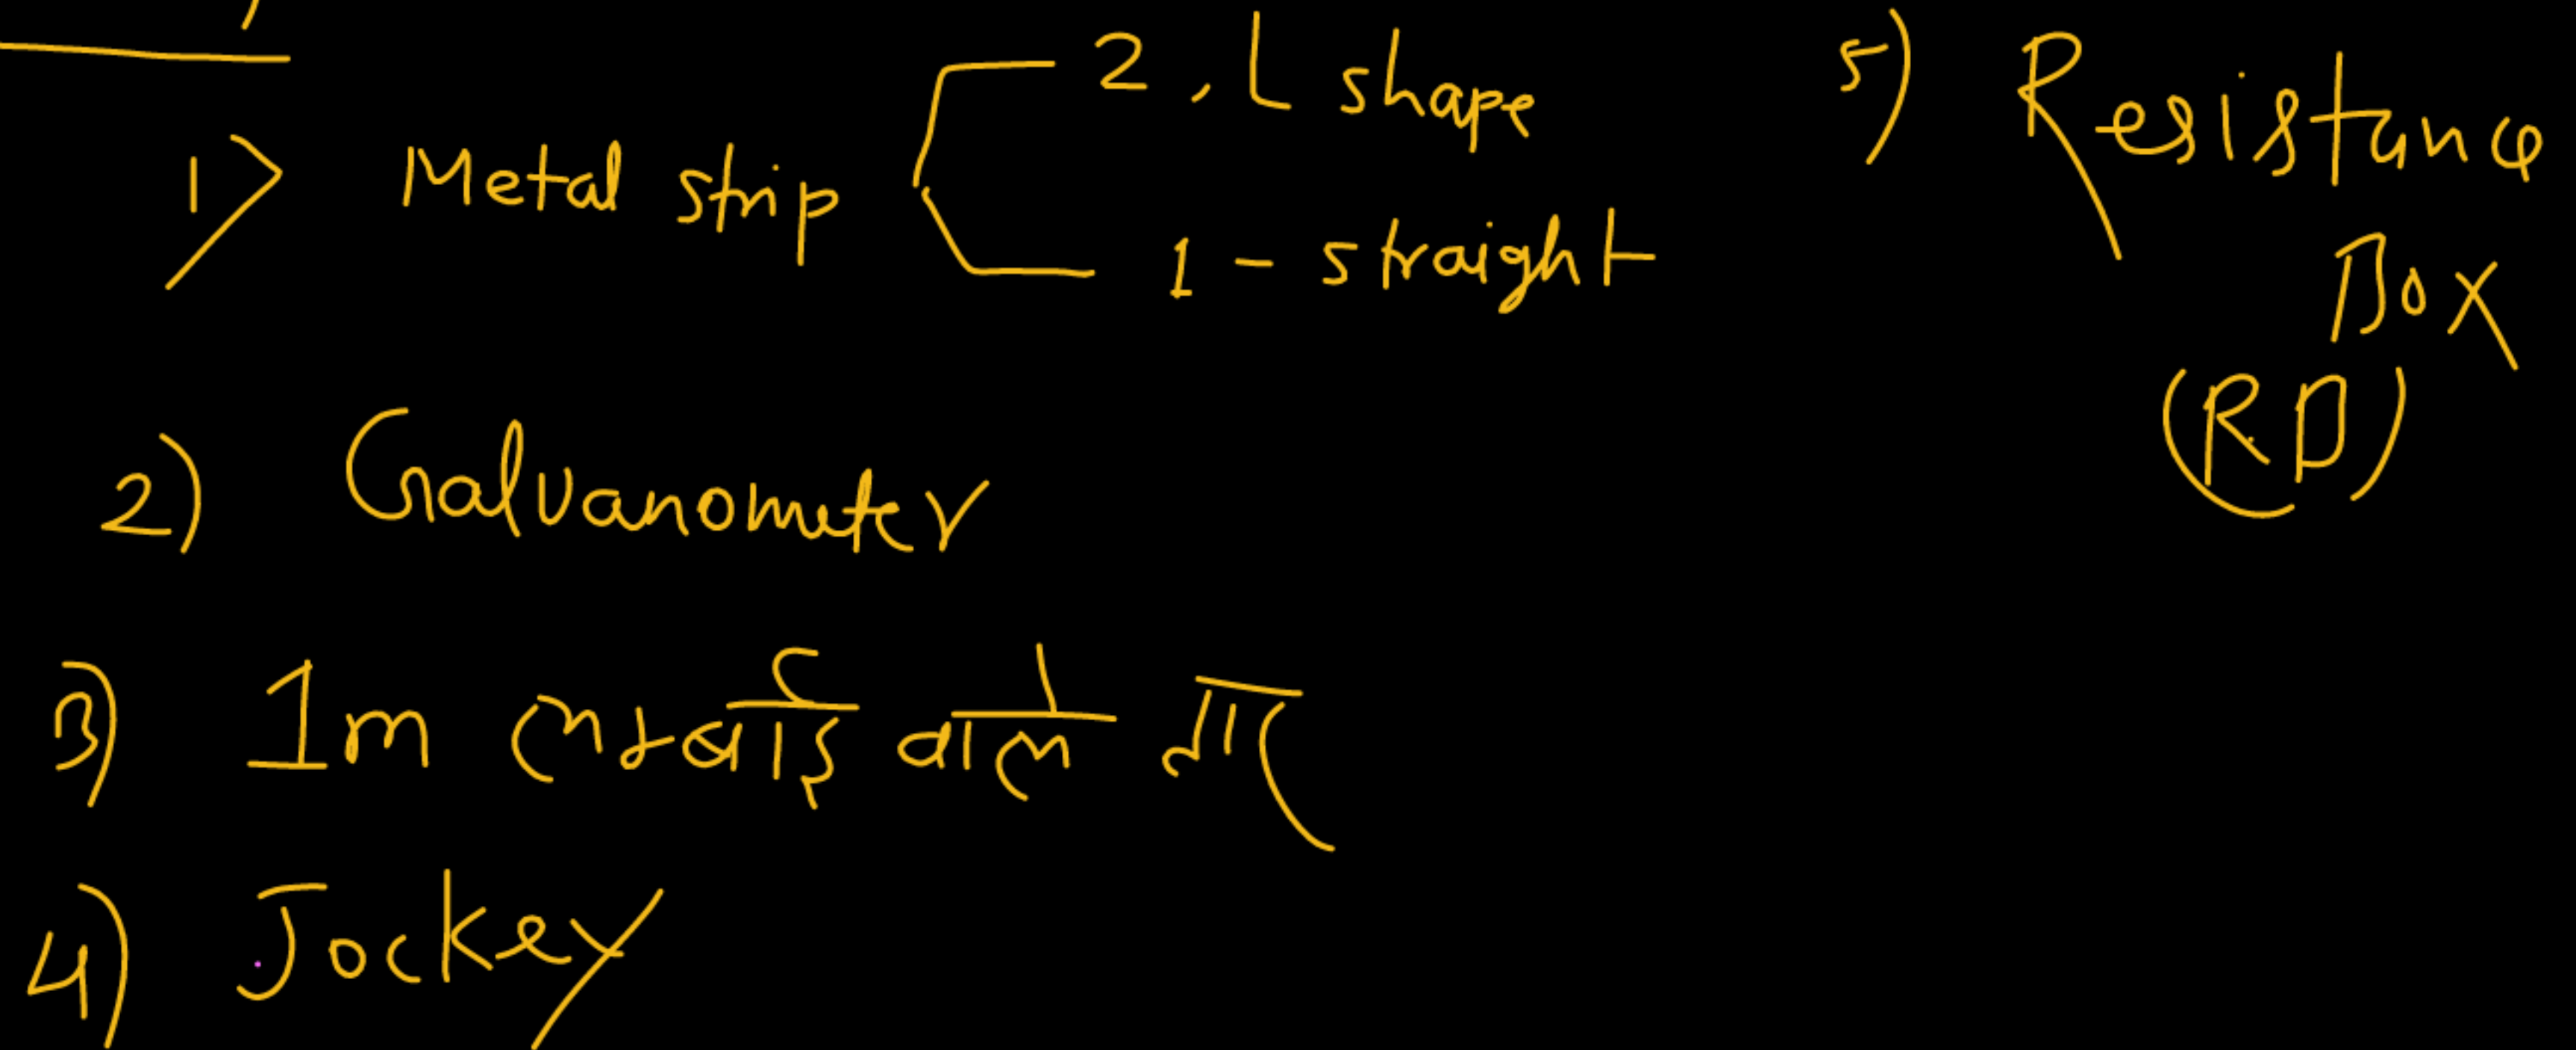 1) Metal strip
2, L shape
1 - straight
2) Galvanometer
3) 1m लम्बाई वाले तार
4) Jockey
5) Resistance
Box
(RB)